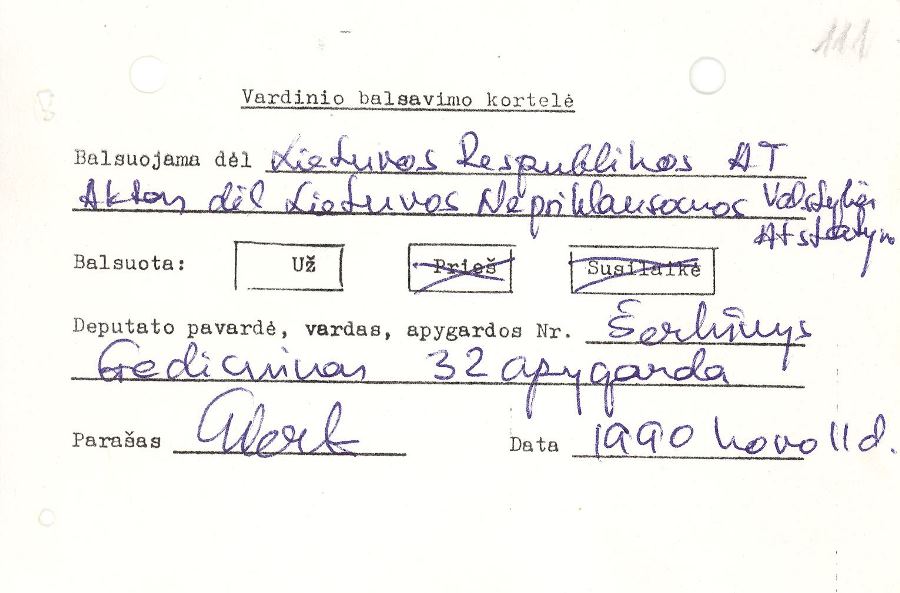 111
Vardinio balsavimo kortelė
Balsuojama dėl Lietuvos Respublikos AT
Aktas dėl Lietuvos Nepriklausomos Valstybės
Atstatymo
Balsuota: Už Prieš Susilaikė
Deputato pavardė, vardas, apygardos Nr. Šerkšnys
Gediminas 32 apygarda
Parašas
Data 1990 kovo 11 d.